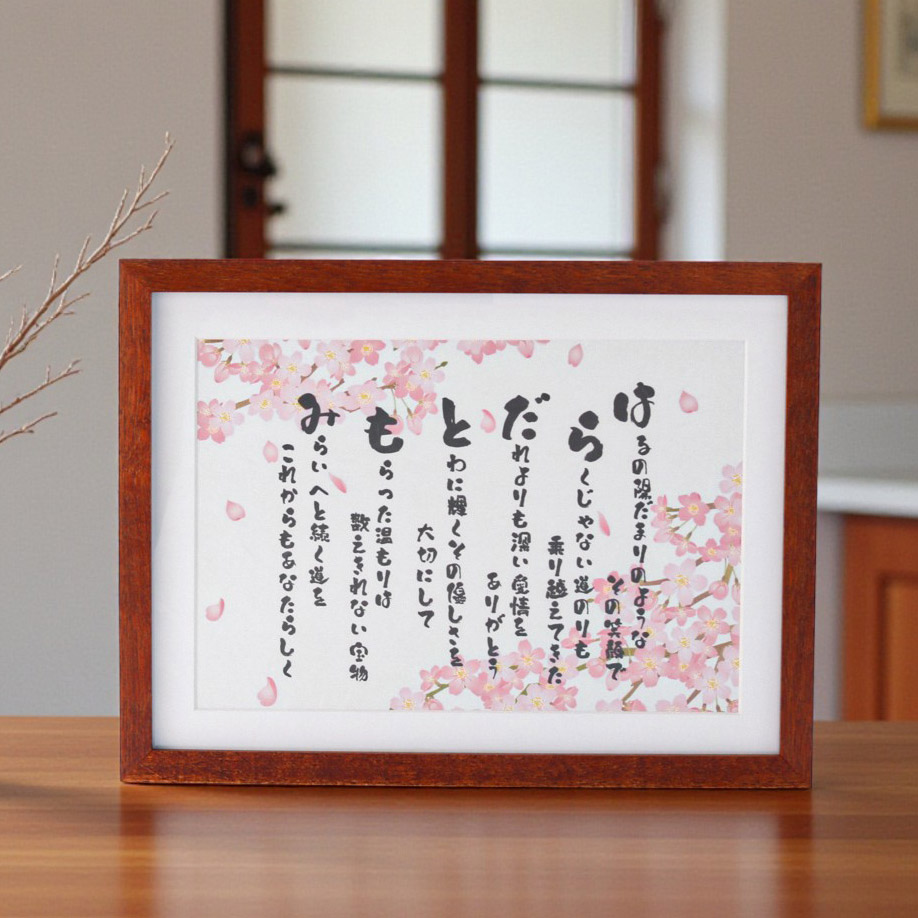 はるの陽だまりのような
その笑顔で
らくじゃない道のりも
乗り越えてきた
だれよりも深い愛情を
ありがとう
とわに輝くその優しさを
大切にして
もらった温もりは
数えきれない宝物
みらいへと続く道を
これからもあなたらしく